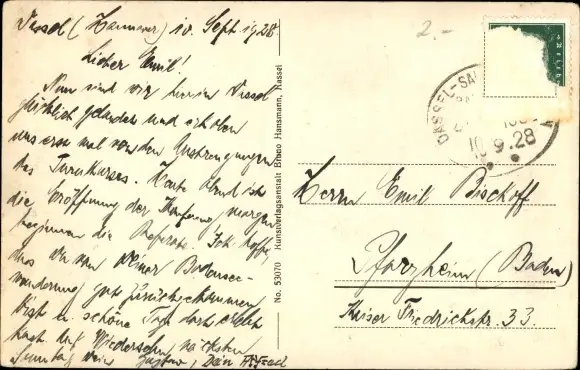 Dassel (Hannover) 10. Sept 1928
Lieber Emil!
Nun sind wir hier in Dassel
glücklich gelandet und erholen
uns erst mal von den Anstrengungen
des Turnkurses. Heute Abend ist
die Eröffnung der Tagung, morgen
beginnen die Referate. Ich hoffe,
dass Du von Deiner Bodensee-
wanderung gut zurückgekommen
bist u. schöne Tage dort erlebt
hast. Auf Wiedersehn nächsten
Sonntag Dein
No. 53070 Kunstverlagsanstalt Bruno Hansmann, Kassel
2.-
DASSEL
10.9.28
Herrn Emil Bischoff
Pforzheim (Baden)
Kaiser Friedrichstr. 33.